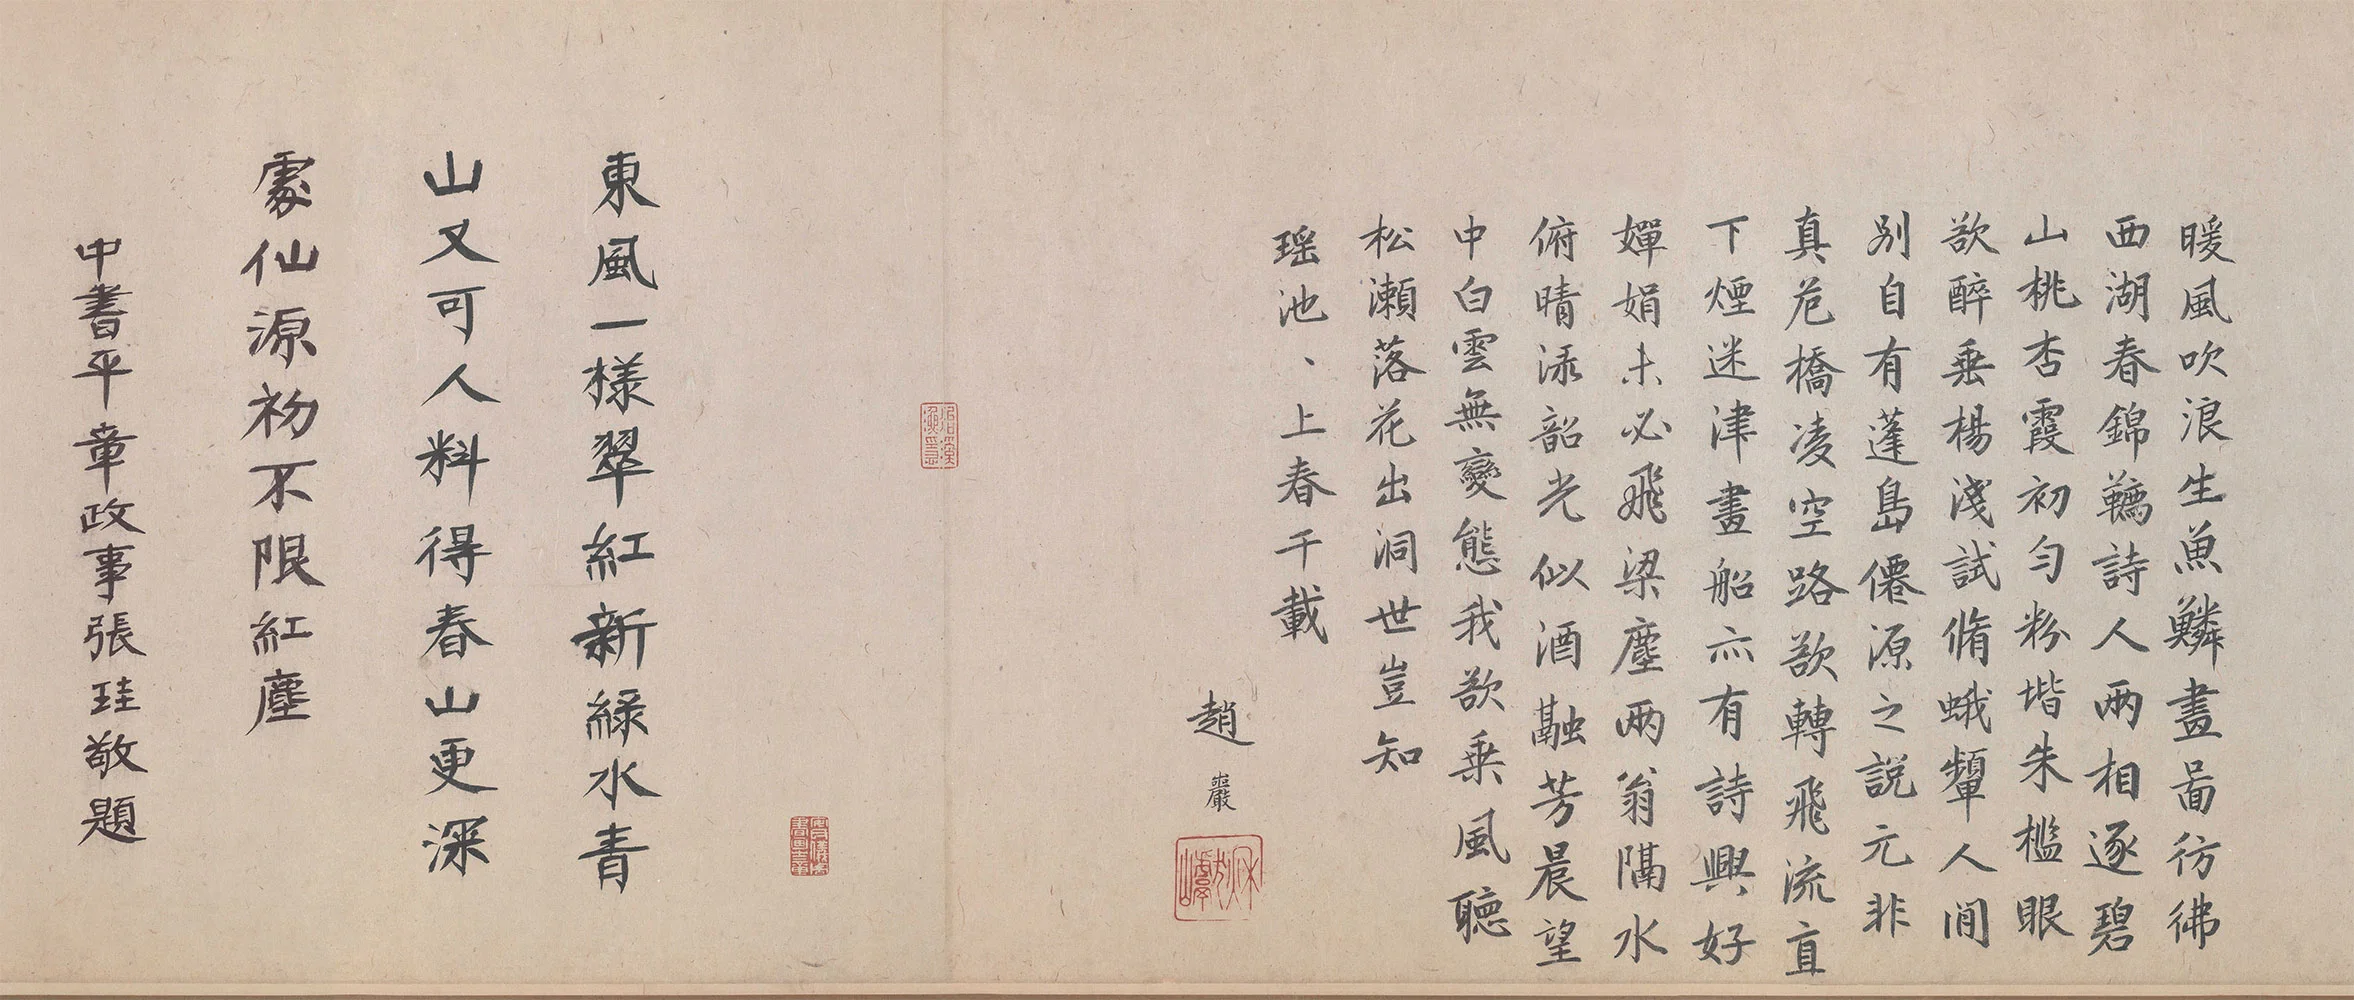 暖風吹浪生魚鱗畫啚彷彿
西湖春錦韉詩人兩相逐碧
山桃杏霞初勻粉堦朱檻眼
欲醉垂楊淺試脩蛾顰人間
別自有蓬島僊源之說元非
真危橋凌空路欲轉飛流直
下煙迷津畫船亦有詩興好
嬋娟未必飛梁塵兩翁隔水
俯晴渌韶光似酒融芳晨望
中白雲無變態我欲乘風聽
松瀨落花出洞世豈知
瑶池、上春千載
趙
巖
東風一樣翠紅新綠水青
山又可人料得春山更深
處仙源初不限紅塵
中書平章政事張珪敬題